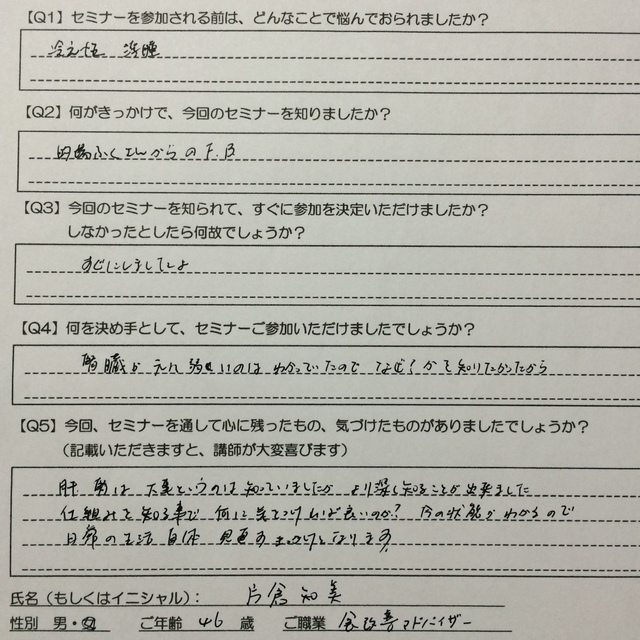 【Q1】セミナーを参加される前は、どんなことで悩んでおられましたか？
冷え性
【Q2】何がきっかけで、今回のセミナーを知りましたか？
からのF.B
【Q3】今回のセミナーを知られて、すぐに参加を決定いただけましたか？
しなかったとしたら何故でしょうか？
すぐにしました
【Q4】何を決め手として、セミナーご参加いただけましたでしょうか？
腎臓が 弱いのは わかっていたので なぜ？かを知りたかったから
【Q5】今回、セミナーを通して心に残ったもの、気づけたものがありましたでしょうか？
（記載いただきますと、講師が大変喜びます）
肝 腎は 大事というのは 知っていましたが より深く知ることが出来ました
仕組みを知る事で 何に気をつければ良いのか？ 今の状態がわかるので
日常の生活自体 見直すきっかけとなります
氏名（もしくはイニシャル）： 片倉 知美
性別 男・女 ご年齢 46 歳 ご職業 食改善アドバイザー